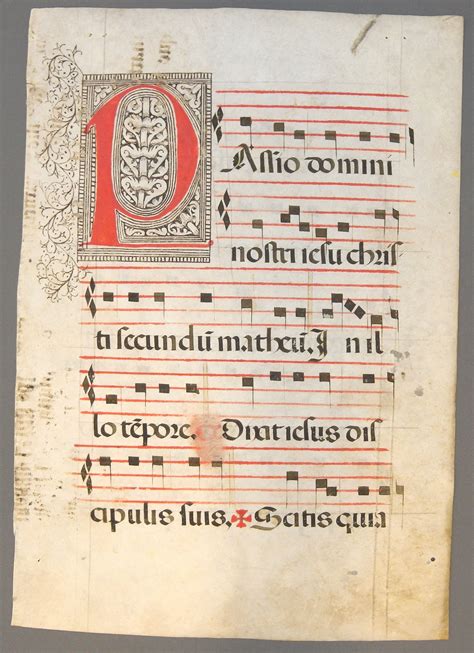 PAssio domini
nostri iesu chris
ti secundū matheū. In il
lo tēpore. Dixit iesus dis
cipulis suis, ✠ Scitis quia